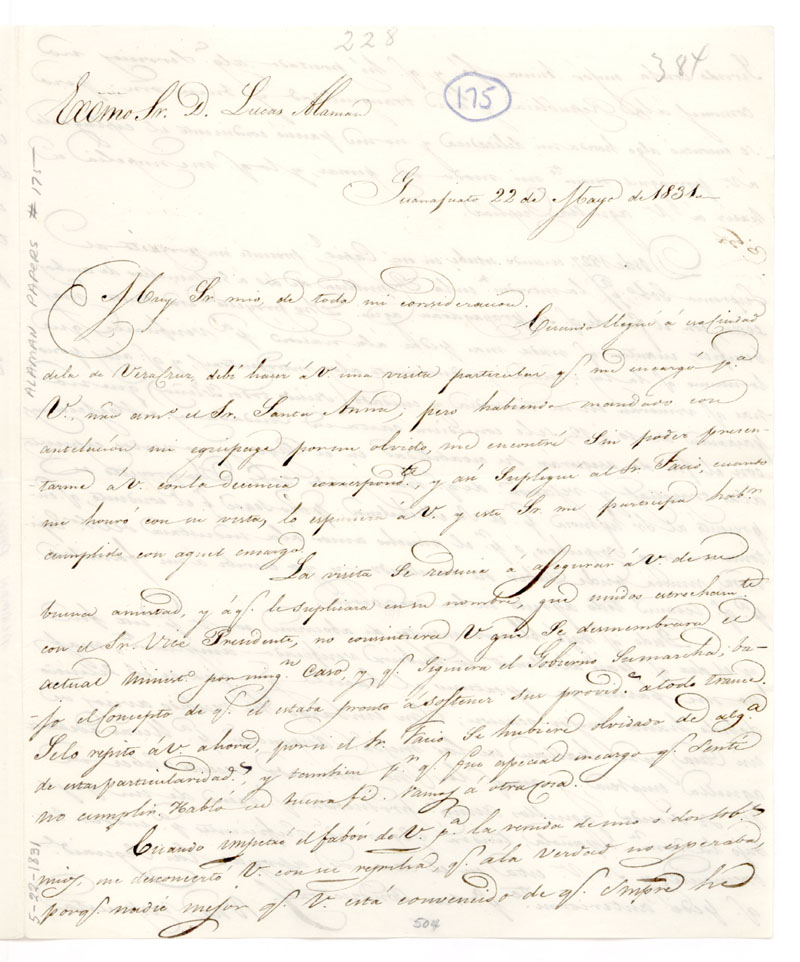 228
384
175
Exćmo Sr. D. Lucas Alamán
Guanajuato 22 de Mayo de 1831.
Muy Sr. mio, de toda mi consideracion.
Cuando llegué á esa Ciudad
dela de VeraCruz, debí hacer á V. una visita particular qe. me encargó pa.
V., não amo. el Sr. Santa Anna, pero habiendo mandado con
antelacion mi equipage por un olvido, me encontré sin poder presen-
tarme á V. con la decencia correspondte., y asi Supliqué al Sr. Facio, cuando
me honró con su visita, lo espusiera á V. y este Sr. me participa habr.
cumplido con aquel encargo.
La visita se reducia á asegurar á V. de su
buena amistad, y á qe. le suplicara en su nombre, que unidos estrechamte.
con el Sr. Vice Presidente, no consintiera V. que se desmembrara el
actual Ministo. por ningn. caso, y qe. siguiera el Gobierno su marcha, ba-
jo el Concepto de qe. el estaba pronto á sostener sus provids. a todo trance.
Selo repito á V. ahora, por si el Sr. Facio se hubiere olvidado de alga.
de estas particularidads., y tambien pr. qe. fué especial encargo qe. Sentí
no cumplir. Habló en buena fé. Vamos á otra cosa.
Cuando impetré el fabor de V. pa. la venida de uno ó dos sobs.
mios, me desconcertó V. con su repulsa, qe. ala verdad no esperaba,
porqe. nadie mejor qe. V. está convencido de qe. Smpre he
504
ALAMAN PAPERS # 175
5-22-1831